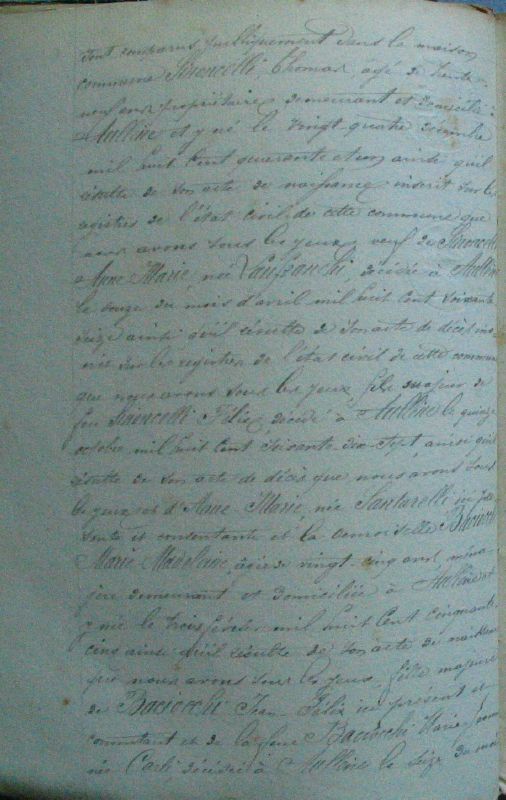 sont comparus publiquement dans la maison
commune Simoncelli Thomas agé de trente
neuf ans propriétaire demeurant et domicilié à
Aullène et y né le vingt-quatre décembre
mil huit cent quarante et un ainsi qu'il
résulte de son acte de naissance inscrit sur les
registres de l'état civil de cette commune que
nous avons sous les yeux, veuf de
Anne Marie née Lanfranchi décédée à Aullène
le douze du mois d'avril mil huit cent soixante
seize ainsi qu'il résulte de son acte de décès
sur les registres de l'état civil de cette commune
que nous avons sous les yeux fils majeur de
feu Félix décédé à Aullène le quinze
octobre mil huit cent soixante dix-sept ainsi qu'il
résulte de son acte de décès que nous avons sous
les yeux et d'Anne Marie née Santarelli ici pré
sente et consentante et la demoiselle Baciocchi
Marie Madeleine agée de vingt-cinq ans ména
gère demeurant et domiciliée à Aullène et
y née le trois février mil huit cent cinquante
cinq ainsi qu'il résulte de son acte de naissance
que nous avons sous les yeux fille majeure
de Baciocchi Jean-Félix ici présent et
consentant et de la feue Baciocchi Marie
née Carli décédée à Aullène le seize du mois